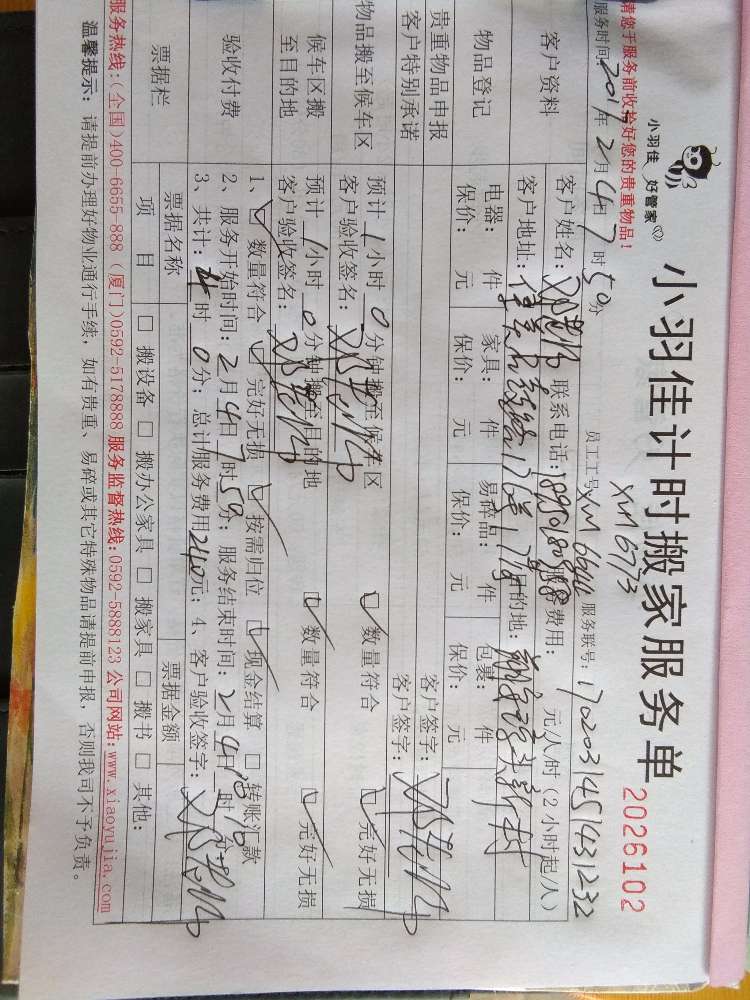 小羽佳 好管家
小羽佳计时搬家服务单
2026102
XM6773
请您于服务前收拾好您的贵重物品！
服务时间2017年2月4日7时50分 员工工号XM6646 服务联号：1702031451431232
客户资料
客户姓名： 联系电话： 服务费用： 元/人/时（2小时起/人）
客户地址： 目的地：
物品登记
电器： 件 家具： 件 易碎品： 件 包裹： 件
保价： 元 保价： 元 保价： 元 保价： 元
贵重物品申报 客户签字：
客户特别承诺 客户签字：
物品搬至候车区
预计1小时0分钟搬至候车区 数量符合 完好无损
客户验收签名：
候车区搬至目的地
预计1小时0分钟搬至目的地 数量符合 完好无损
客户验收签名：
验收付费
1、 数量符合 完好无损 按需归位 现金结算 转账汇款
2、服务开始时间：2月4日7时59分；服务结束时间：2月4日 时 分；
3、共计： 时0分；总计服务费用240元；4、客户验收签字：
票据栏
票据名称 票据金额
项目 搬设备 搬办公家具 搬家具 搬书 其他：
服务热线：（全国）400-6655-888（厦门）0592-5178888 服务监督热线：0592-5888123 公司网站：www.xiaoyujia.com
温馨提示：请提前办理好物业通行手续，如有贵重、易碎或其它特殊物品请提前申报，否则我司不予负责。